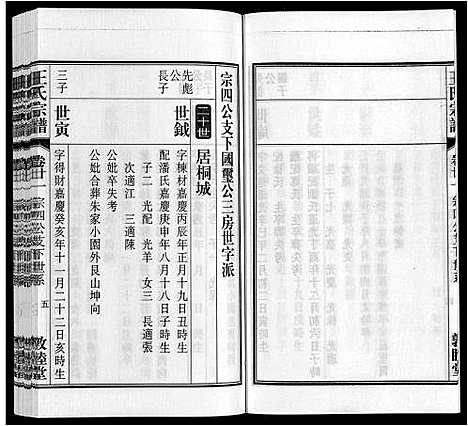 宗四公支下國璽公三房世字派
二十世
居桐城
先彪公長子
世鉞
字棟材嘉慶丙辰年正月十九日丑時生
配潘氏嘉慶庚申年八月十八日子時生
子二 光配 光羊 女三 長適張
次適江 三適陳
公妣卒失考
公妣合葬朱家小園外艮山坤向
三子
世寅
字得財嘉慶癸亥年十一月二十二日亥時生
王氏宗譜
卷廿一 宗四公支下世系
五
敦睦堂
王氏宗譜
卷廿一 宗四公支下世系
敦睦堂